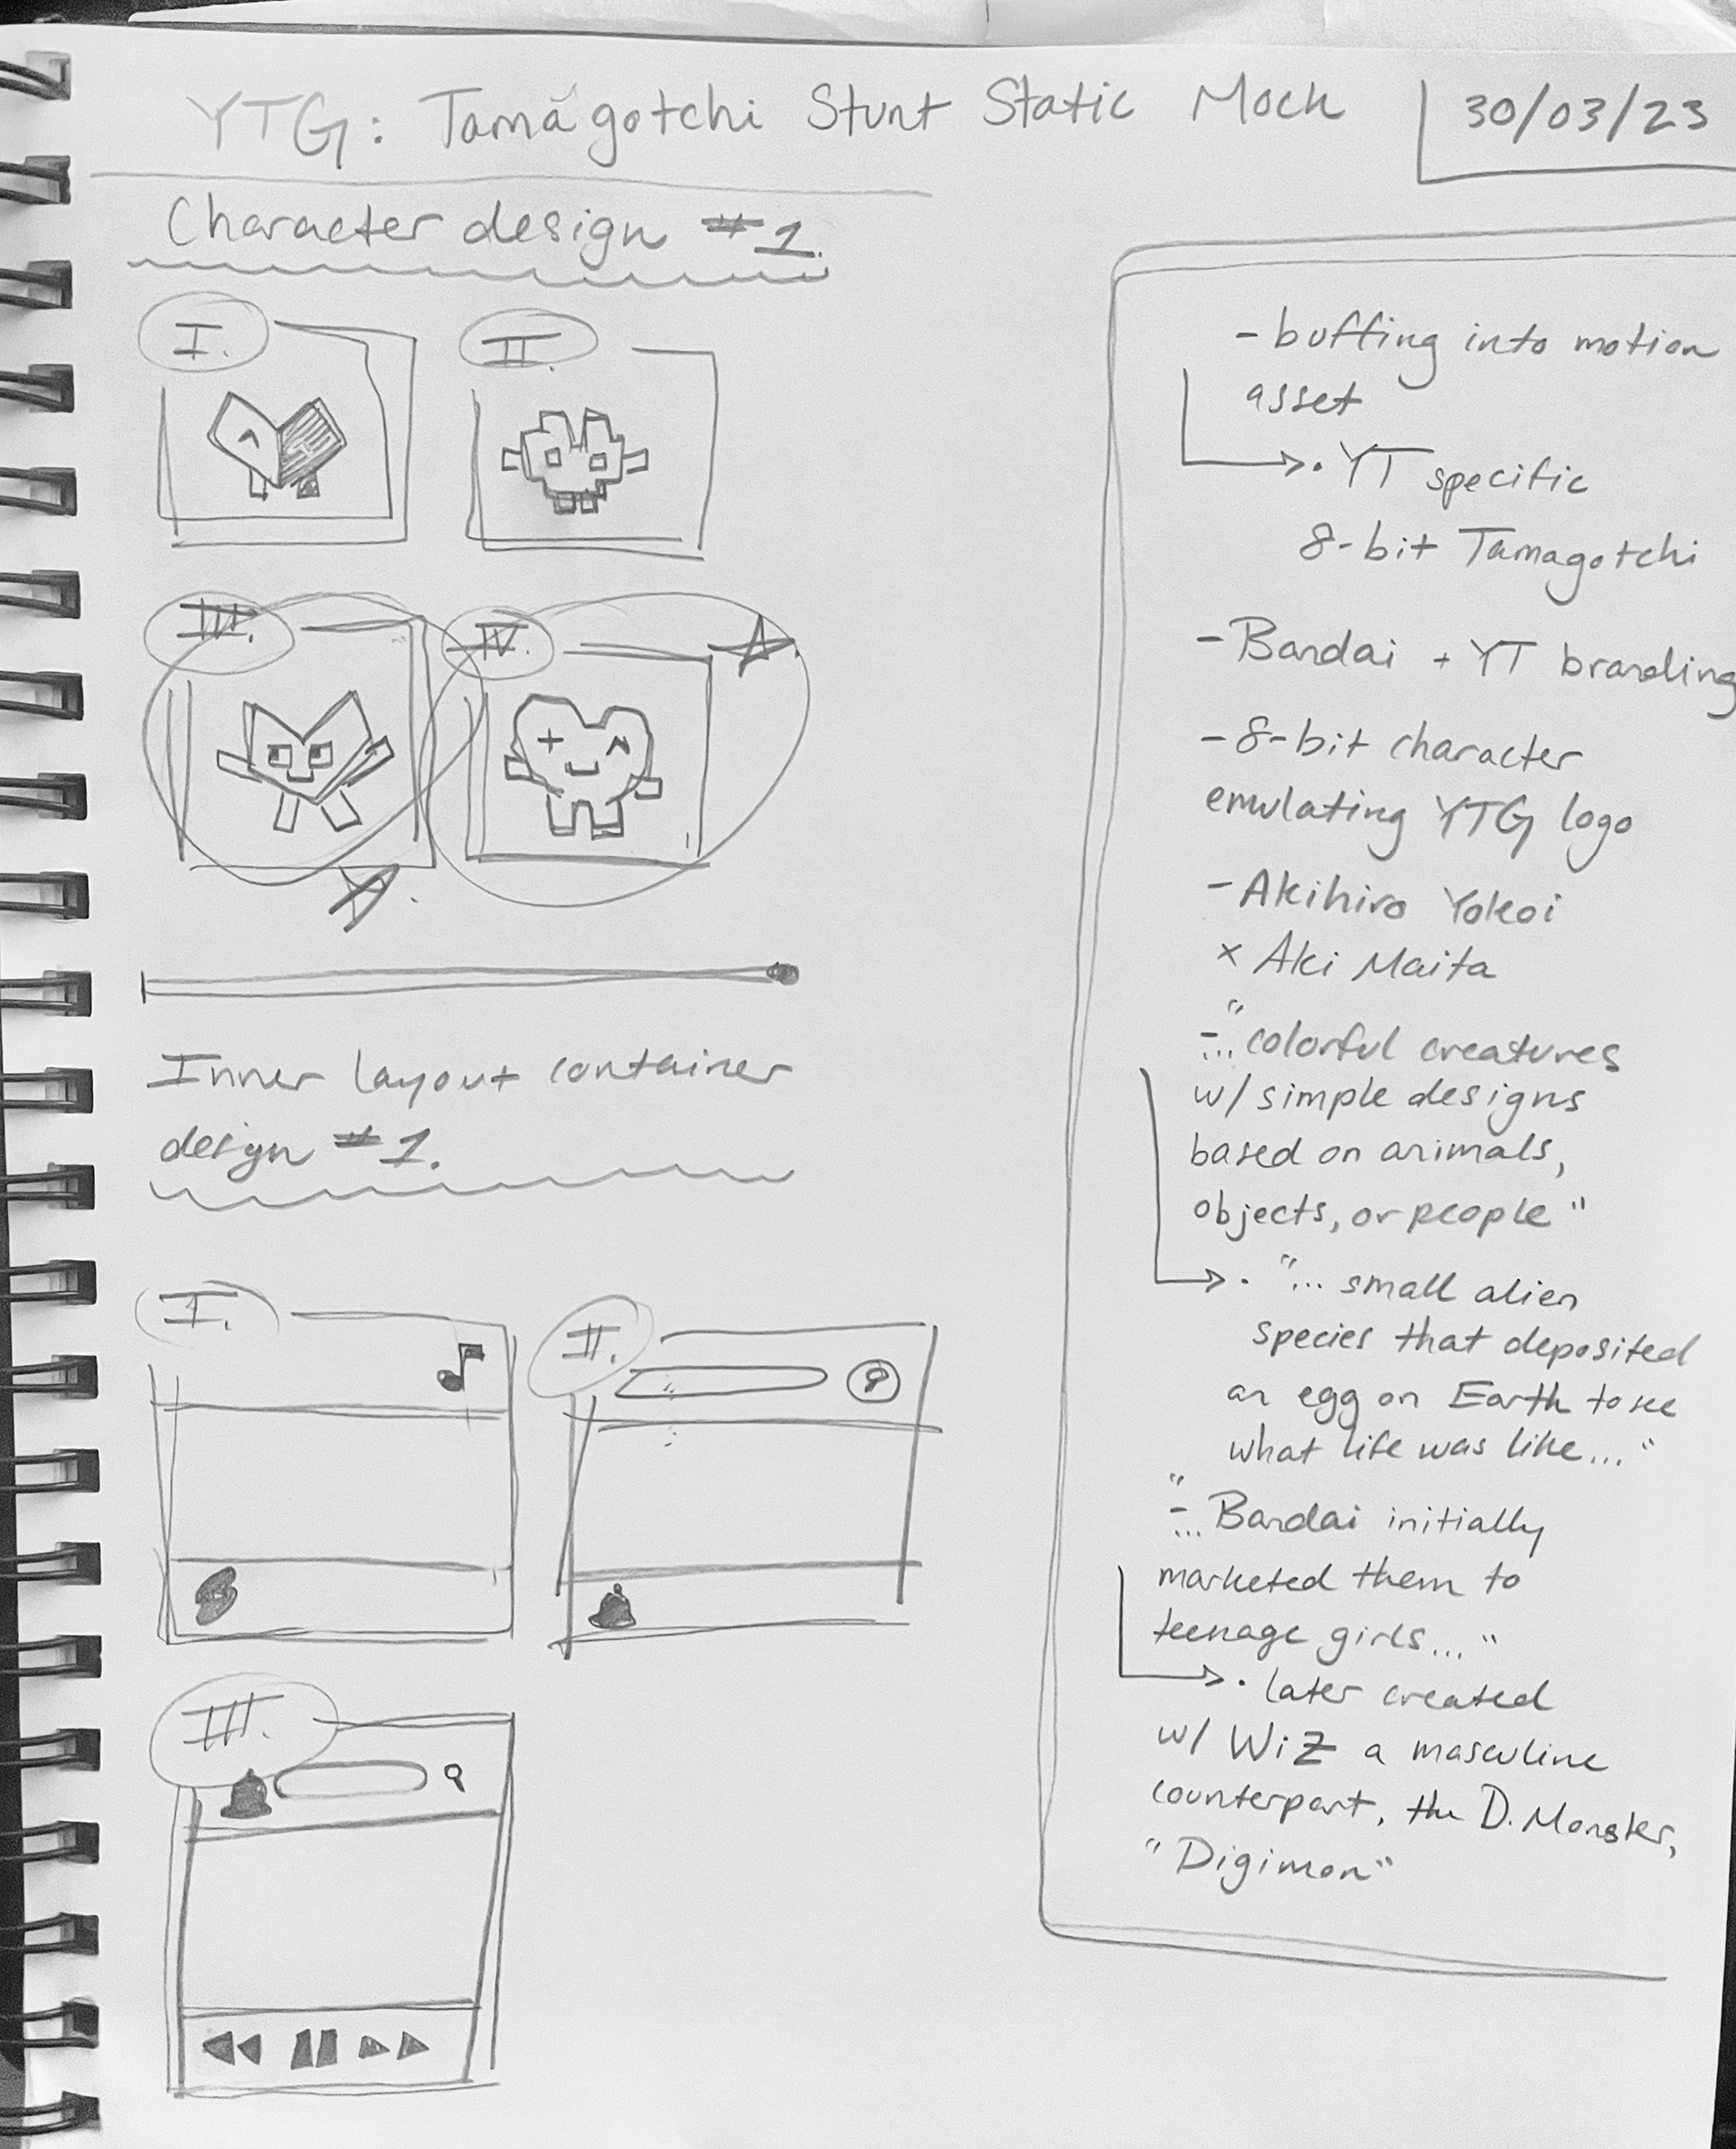 YTG: Tamagotchi Stunt Static Mock
30/03/23
Character design #1.
I.
II.
III.
IV.
Inner layout container
design #1.
I.
II.
III.
- buffing into motion
asset
→ • YT specific
8-bit Tamagotchi
- Bandai + YT branding
- 8-bit character
emulating YTG logo
- Akihiro Yokoi
x Aki Maita
- "... colorful creatures
w/ simple designs
based on animals,
objects, or people"
→ • "... small alien
species that deposited
an egg on Earth to see
what life was like..."
- "... Bandai initially
marketed them to
teenage girls..."
→ • later created
w/ WiZ a masculine
counterpart, the D. Monster,
"Digimon"